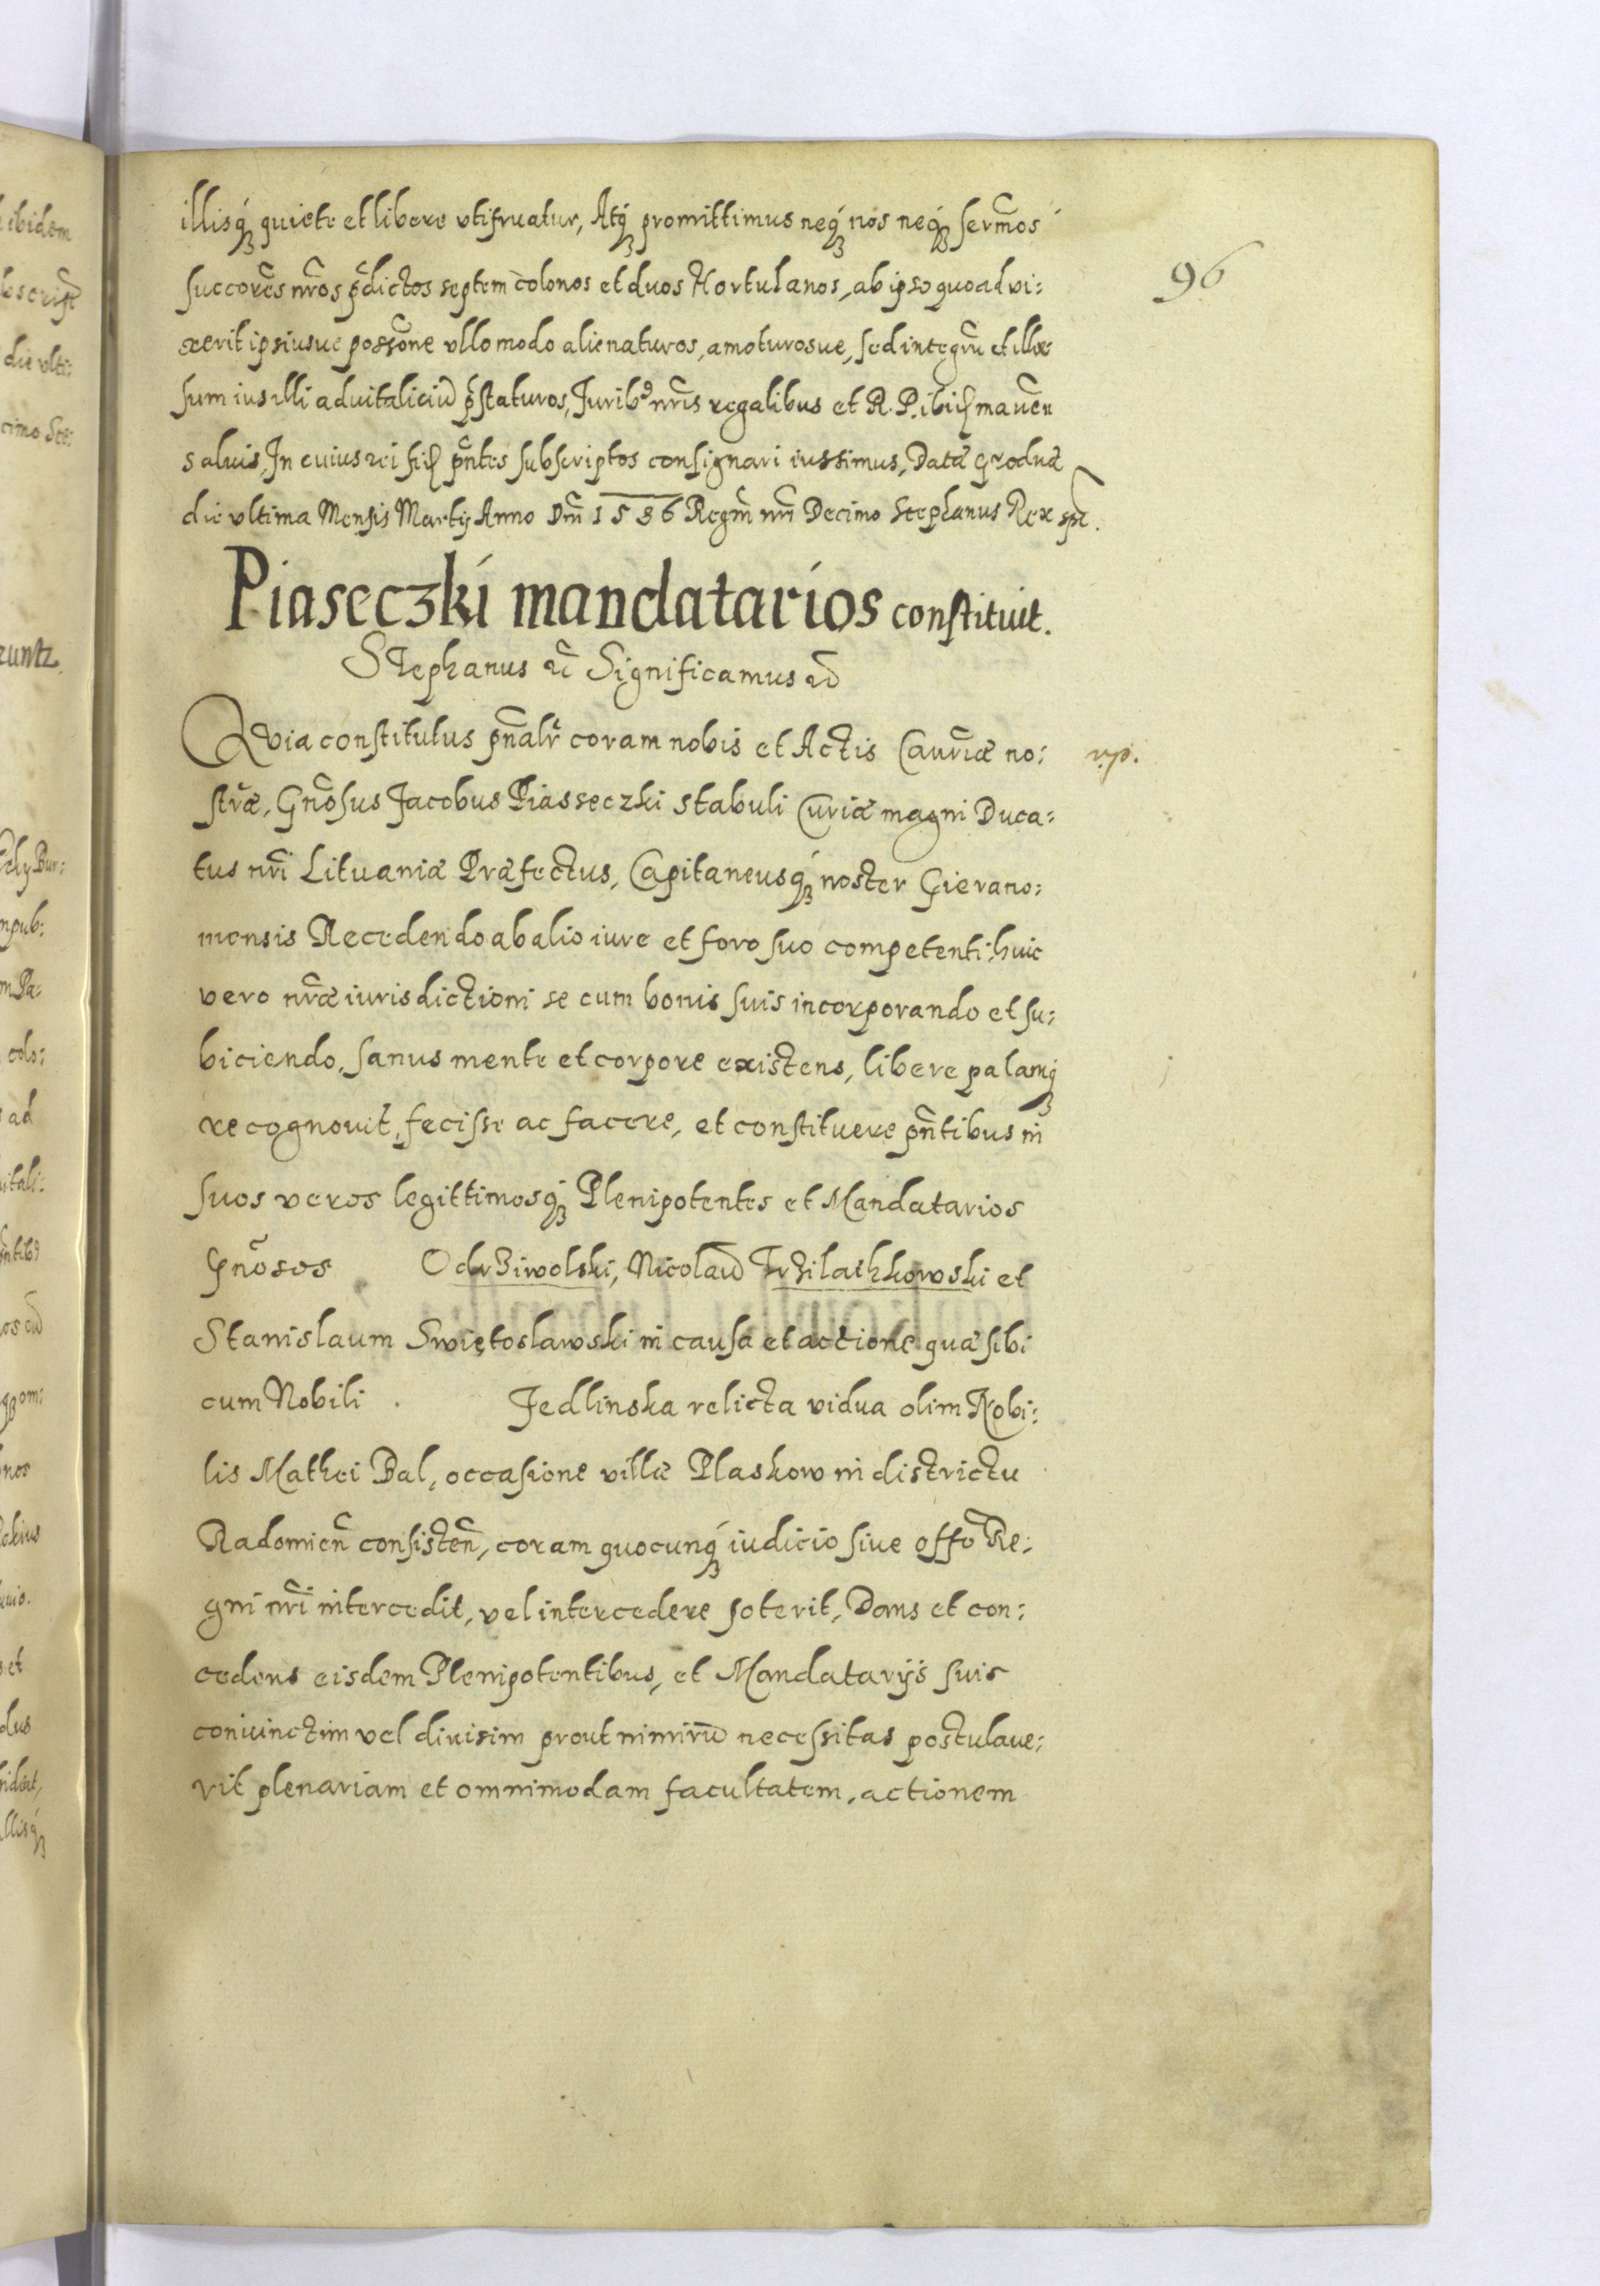 illisq́ꝫ quiete et libere vtifruatur, Atq́ꝫ promittimus neq́ꝫ nos neq́ꝫ serm̃os
succorẽs nr̃os p̃dictos septem colonos et duos Hortulanos, ab ipso quoad vi:
xerit ipsiusue possõne vllo modo alienaturos, amoturosue, sed integrũ et illæ
sum ius illi aduitaliciũ p̃staturos, Juribꝰ nr̃is regalibus et R. P. ibiꝗ manen̄
saluis, In cuius rei fiꝗ pñtes subscriptos consignari iussimus, Datæ Grodnæ
die vltima Mensis Martij Anno Dñi 1586 Regñi nr̃i Decimo Stephanus Rex sp̃t.
96
Piaseczki mandatarios constituit.
Stephanus et̃ Significamus et̃
Qvia constitutus pñalr̃ coram nobis et Actis Caur̃iæ no:
vp.
str̃æ, Gñosus Jacobus Piasseczki stabuli Curiæ magni Duca:
tus nr̃i Lituaniæ Præfectus, Capitaneusq́ꝫ noster Gierano:
mensis Recedendo ab alio iure et foro suo competenti: huic
vero nr̃æ iurisdictioni se cum bonis suis incorporando et su:
biciendo, sanus mente et corpore existens, libere palamq́ꝫ
recognouit, fecisse ac facere, et constituere pñtibus in
suos veros legittimosq́ꝫ Plenipotentes et Mandatarios
Gñosos Odrziwolski, Nicolaũ Trzilathkowski et
Stanislaum Swiętoslawski in causa et actione quæ sibi
cum Nobili . Jedlinska relicta vidua olim Nobi:
lis Mathei Bal, occasione villæ Plaskow in districtu
Radomien̄ consisten̄, coram quocunq́ꝫ iudicio siue offõ Re:
gni nr̃i intercedit, vel intercedere poterit, Dans et con:
cedens eisdem Plenipotentibus, et Mandatarijs suis
coniunctim vel diuisim prout nimirũ necessitas postulaue:
rit plenariam et omnimodam facultatem, actionem